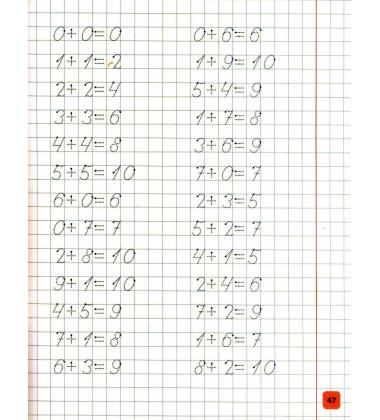 0+0=0
1+1=2
2+2=4
3+3=6
4+4=8
5+5=10
6+0=6
0+7=7
2+8=10
9+1=10
4+5=9
7+1=8
6+3=9
0+6=6
1+9=10
5+4=9
1+7=8
3+6=9
7+0=7
2+3=5
5+2=7
4+1=5
2+4=6
7+2=9
1+6=7
8+2=10
47